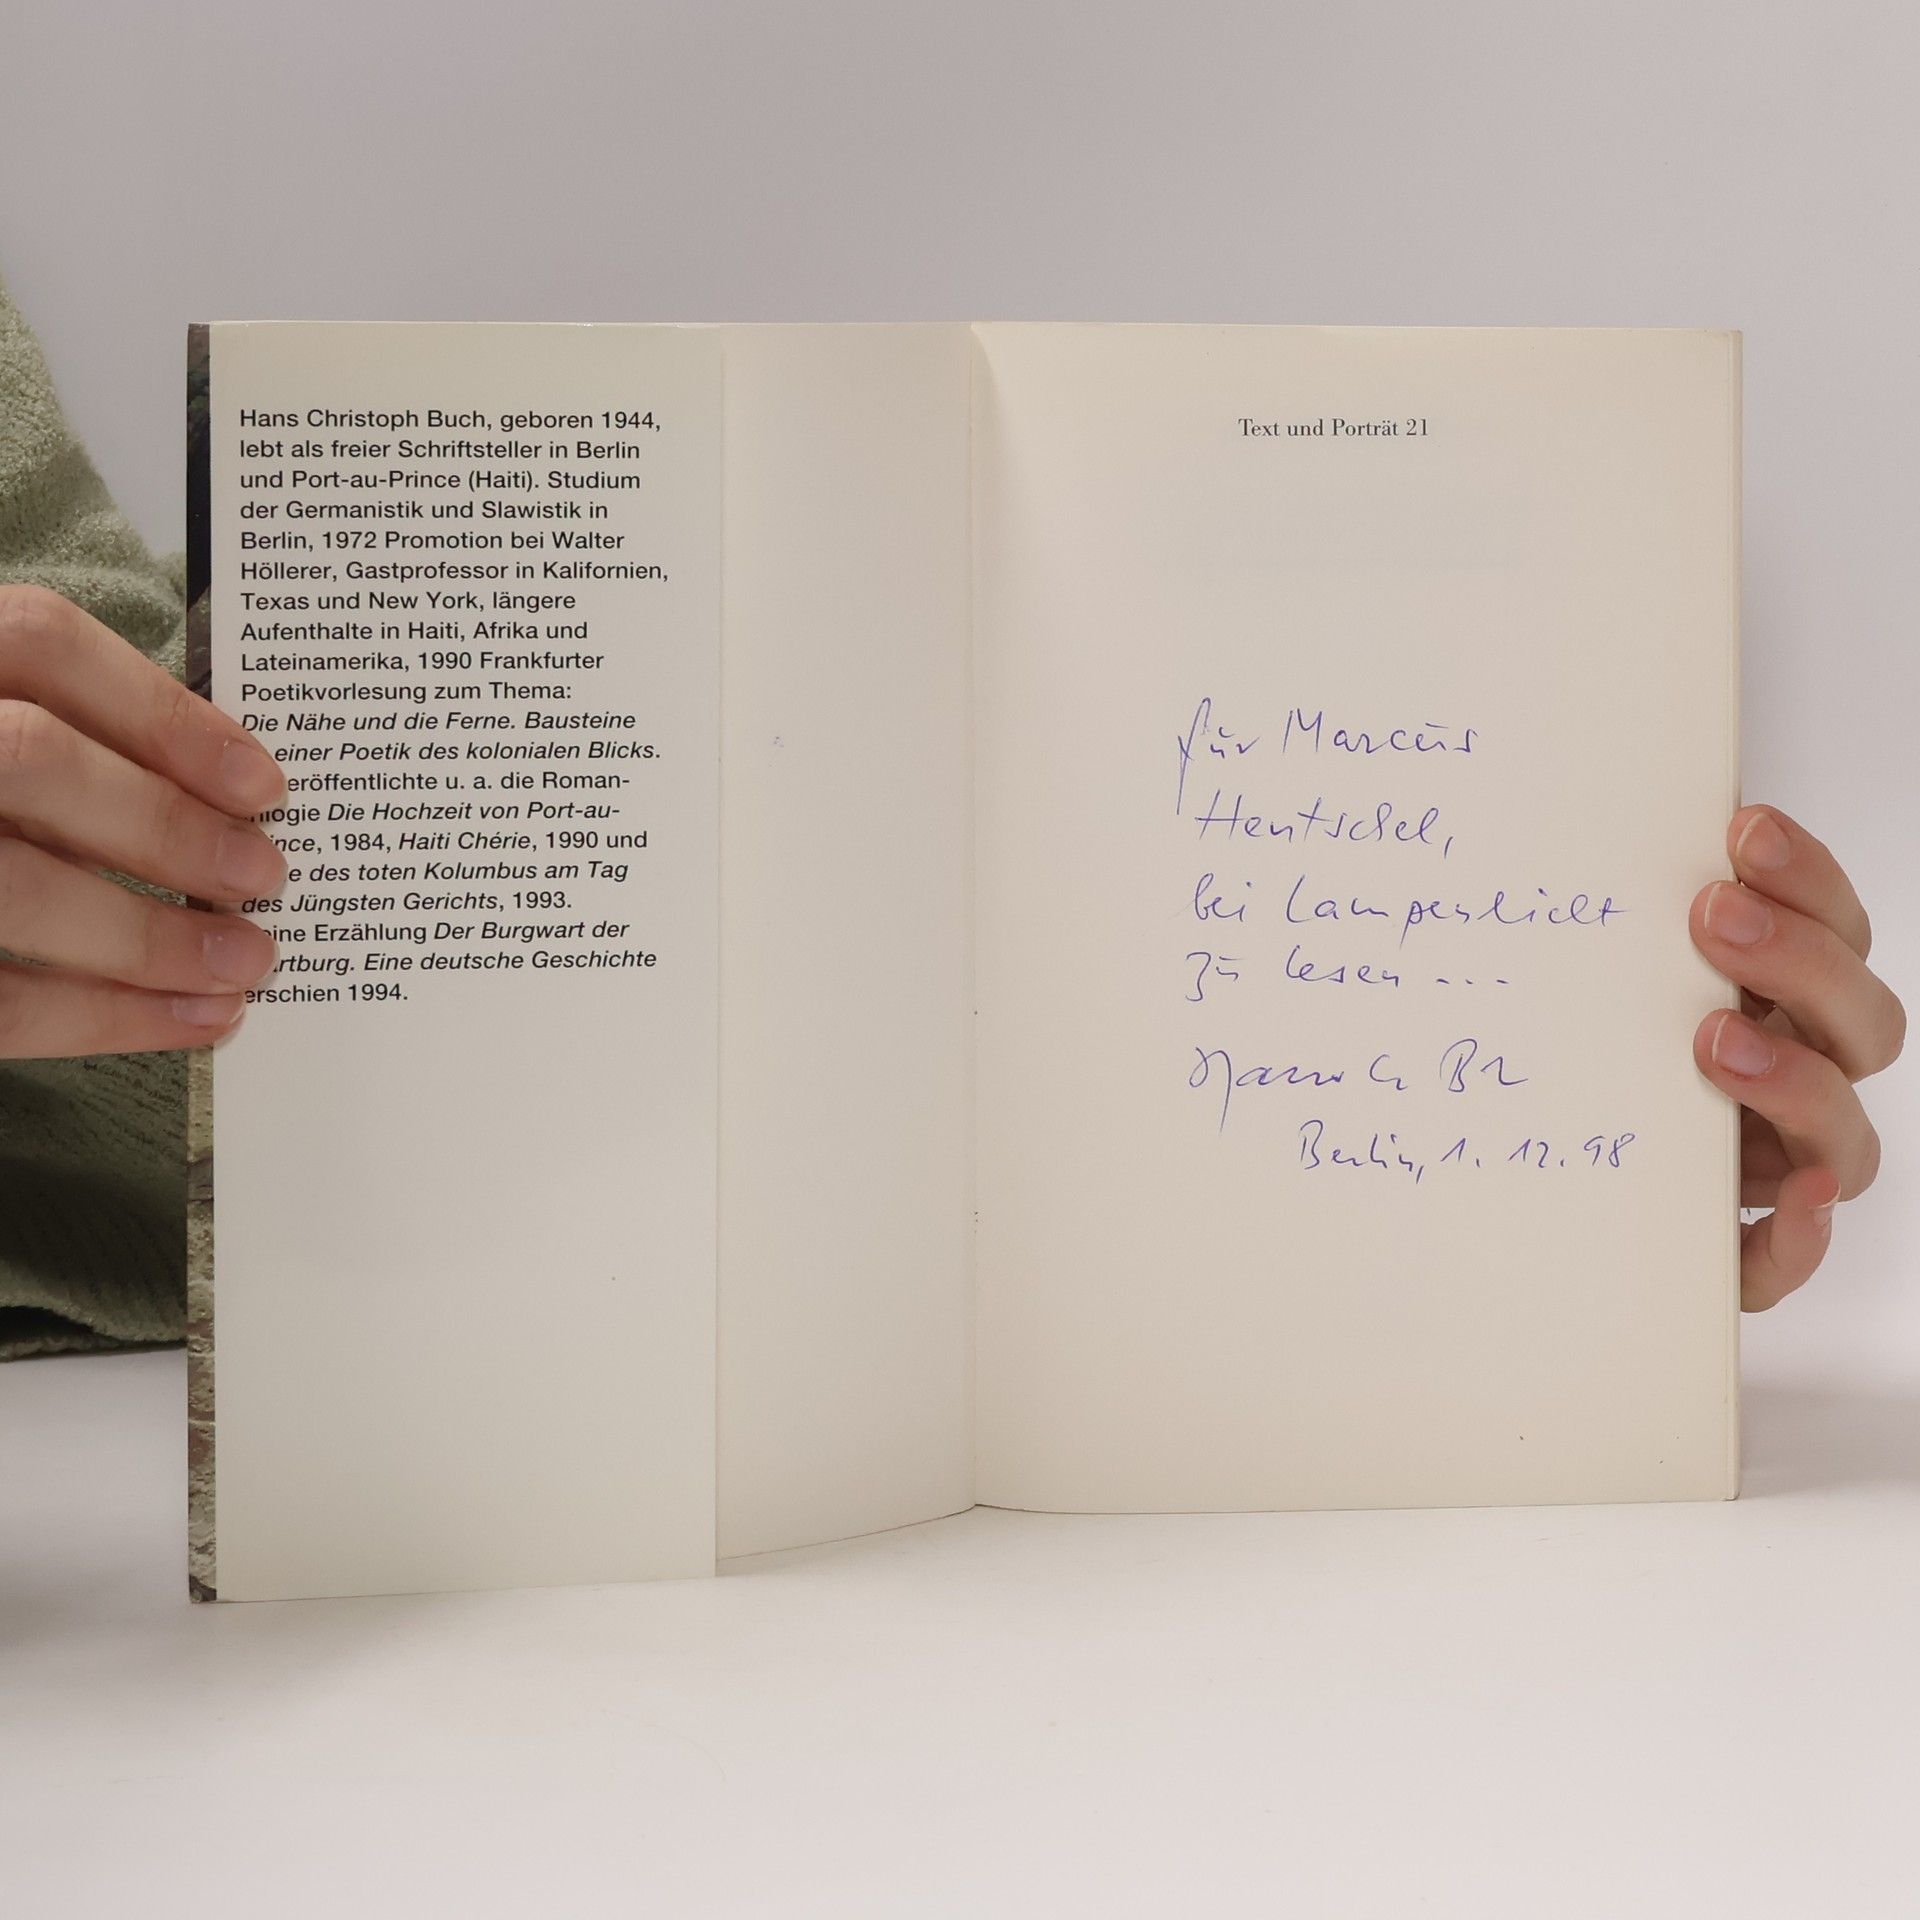 Hans Christoph Buch, geboren 1944,
lebt als freier Schriftsteller in Berlin
und Port-au-Prince (Haiti). Studium
der Germanistik und Slawistik in
Berlin, 1972 Promotion bei Walter
Höllerer, Gastprofessor in Kalifornien,
Texas und New York, längere
Aufenthalte in Haiti, Afrika und
Lateinamerika, 1990 Frankfurter
Poetikvorlesung zum Thema:
Die Nähe und die Ferne. Bausteine
einer Poetik des kolonialen Blicks.
u. a. die Roman-
Die Hochzeit von Port-au-
1984, Haiti Chérie, 1990 und
des toten Kolumbus am Tag
des Jüngsten Gerichts, 1993.
Erzählung Der Burgwart der
Eine deutsche Geschichte
erschien 1994.
Text und Porträt 21
für Marcus
Hentschel,
bei Lampenlicht
zu lesen ...
Berlin, 1. 12. 98